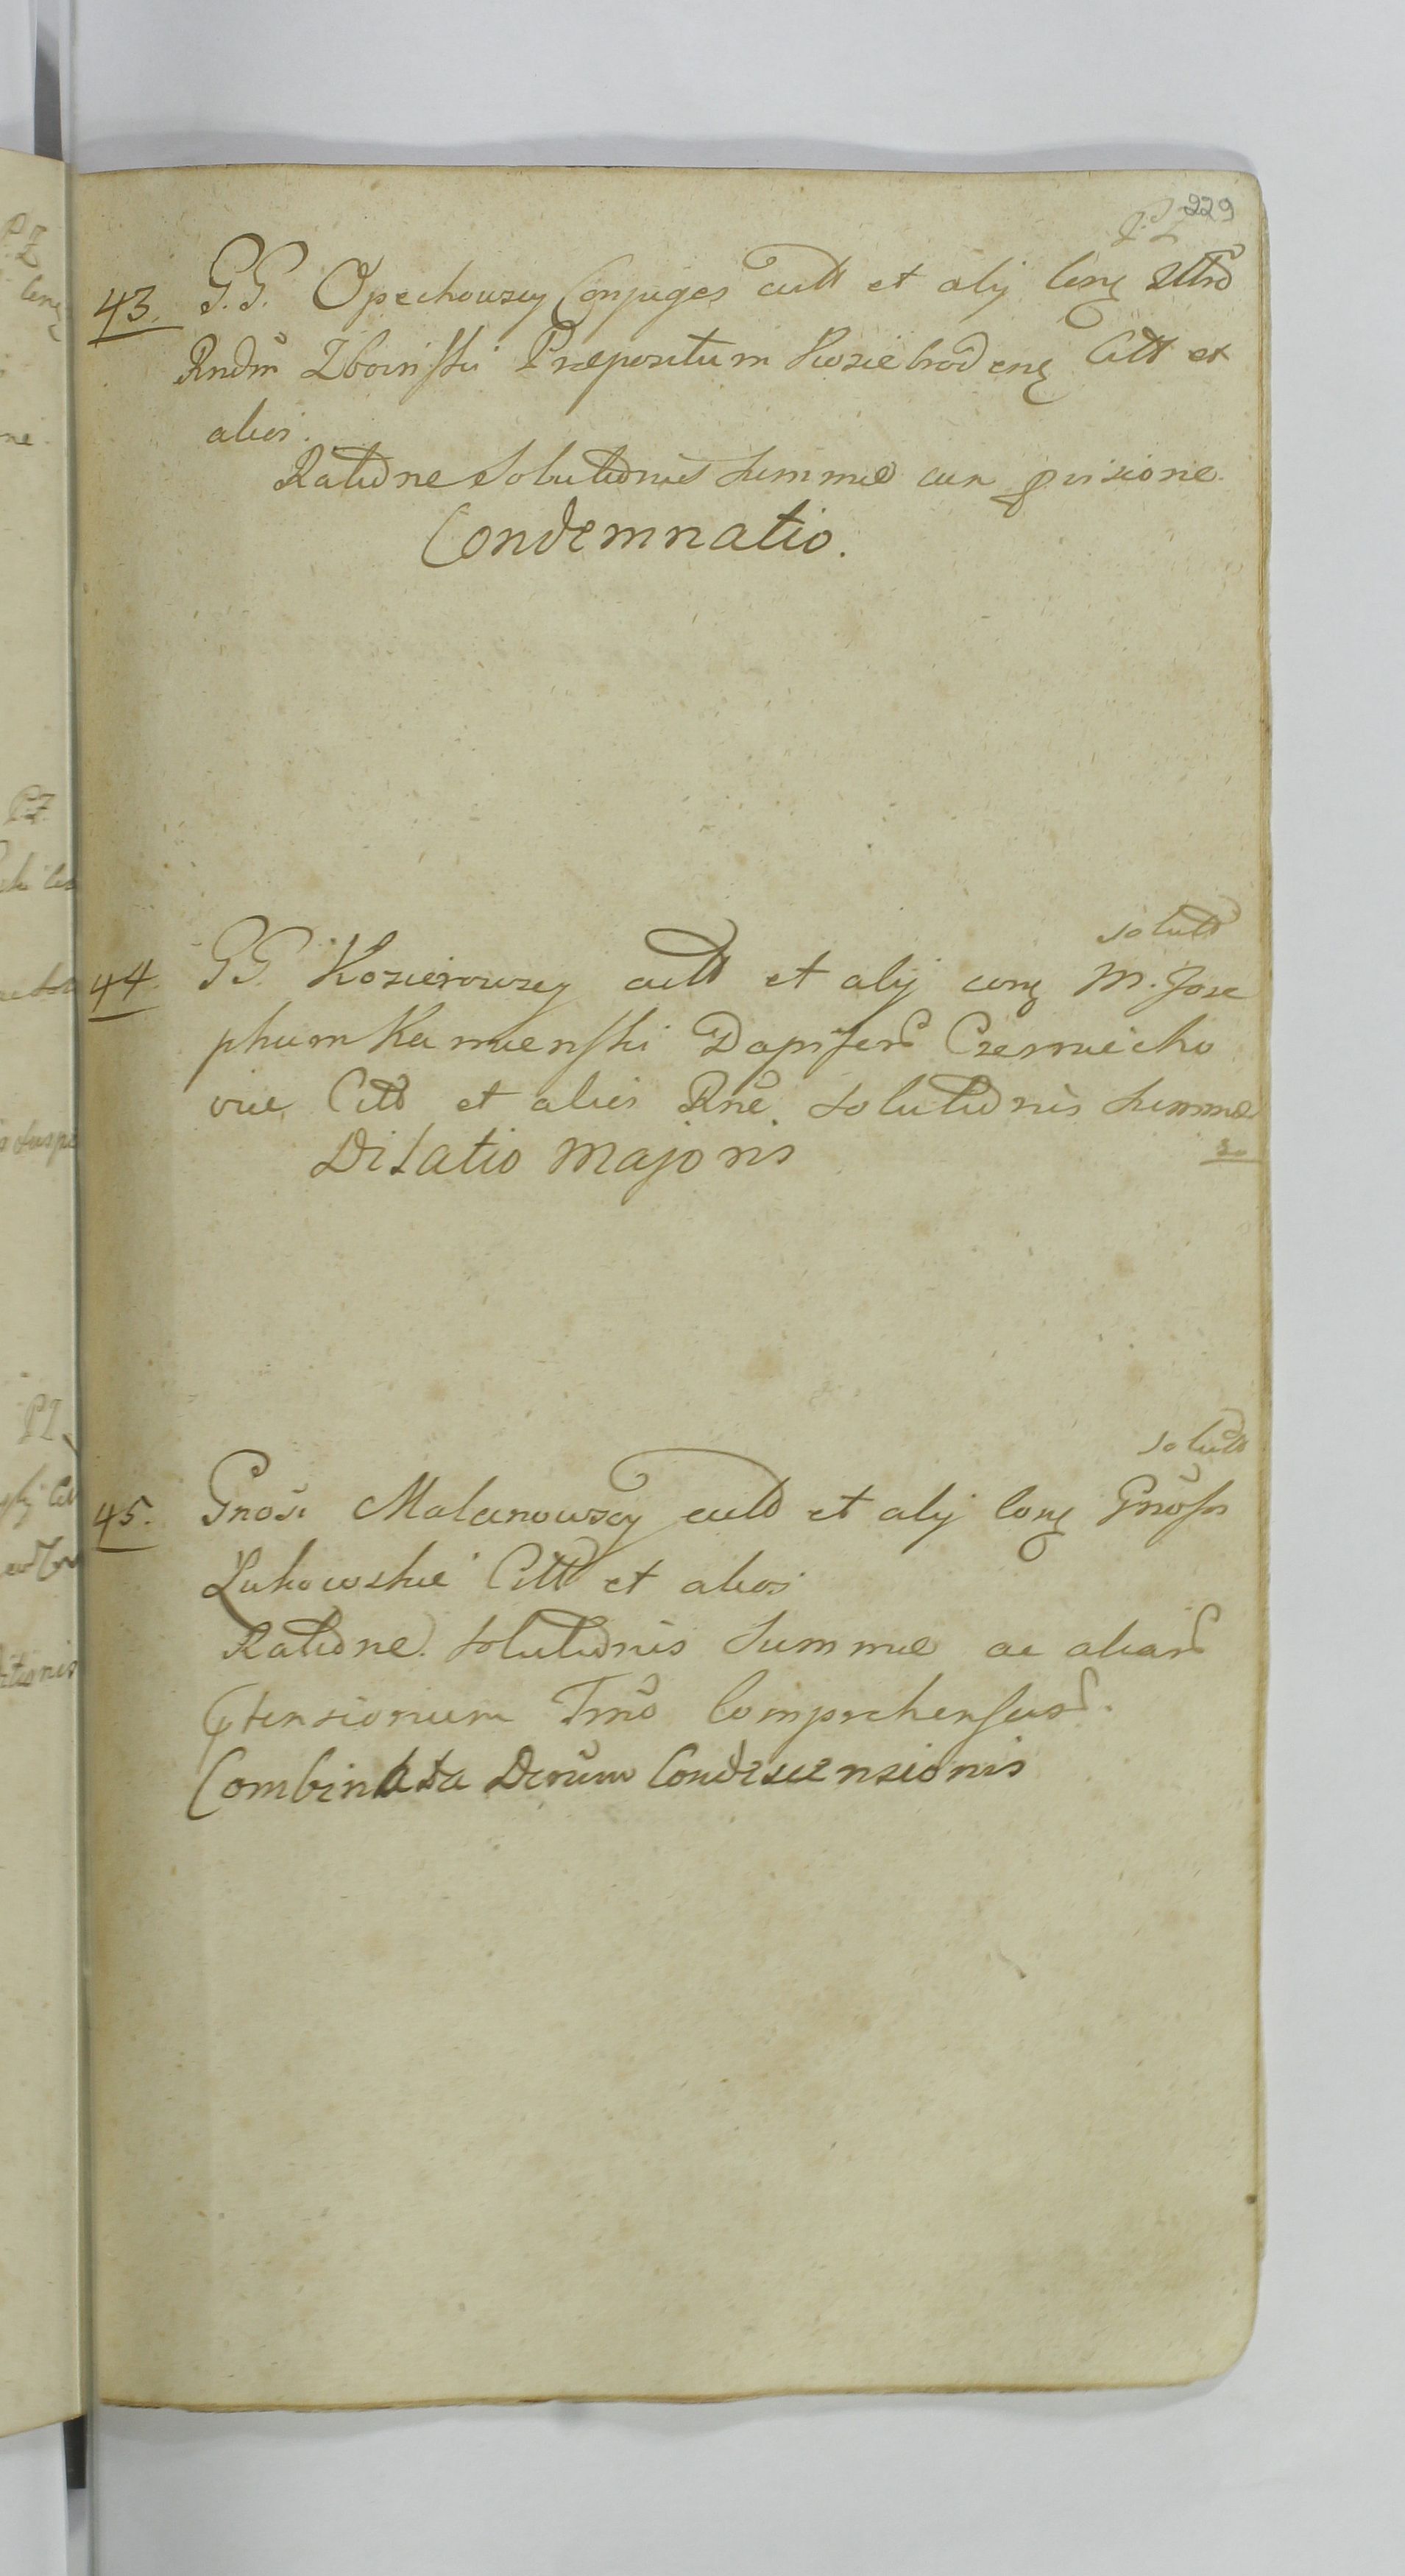 229
P. Z
43. G.G. Opechowscy Conjuges actt et alij conę Illrd
Rndm Zboinski Præpositum Koziebrodenę Citt et
alios.
Ratione Solutionis Summæ cum provisione.
Condemnatio.
solutt
44. GG. Kozierowscy actt et alij conę M. Jose
phum Kamienski Dapiferd Czerniecho
viæ Citt et alios Rne solutionis Summæ
Dilatio Majoris
solutt
45. Gnosi Malanowscy actt et alij conę Gnosos
Łukowskie Citt et alios
Ratione solutionis Summæ ac aliard
Ptensionum Tmno Comprehensard.
Combinata Derum Condescensionis